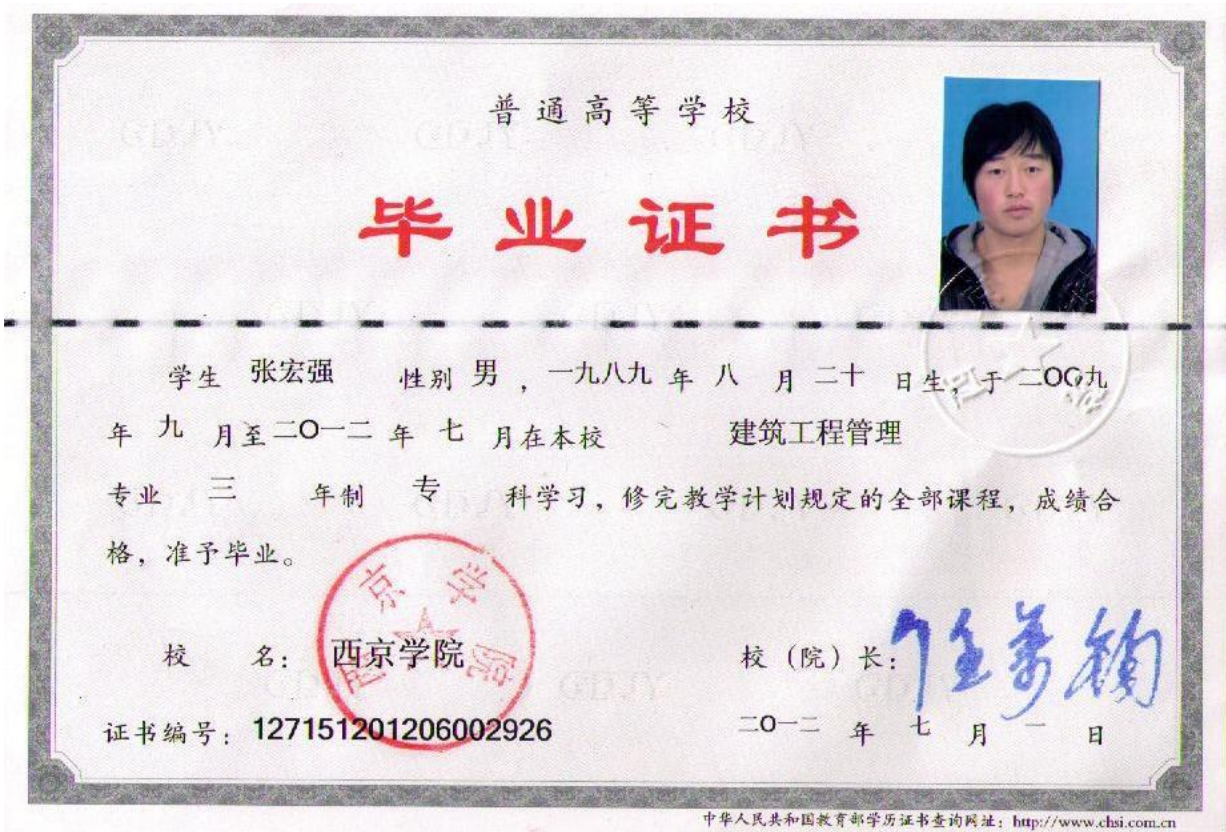 普通高等学校
毕业证书
学生 张宏强 性别 男 ，一九八九 年 八 月 二十 日生，于 二OO九
年 九 月至 二O一二 年 七 月在本校 建筑工程管理
专业 三 年制 专 科学习，修完教学计划规定的全部课程，成绩合
格，准予毕业。
西京学院
校 名： 西京学院 校（院）长： 任万钧
证书编号：127151201206002926 二O一二 年 七 月 一 日
中华人民共和国教育部学历证书查询网址：http://www.chsi.com.cn